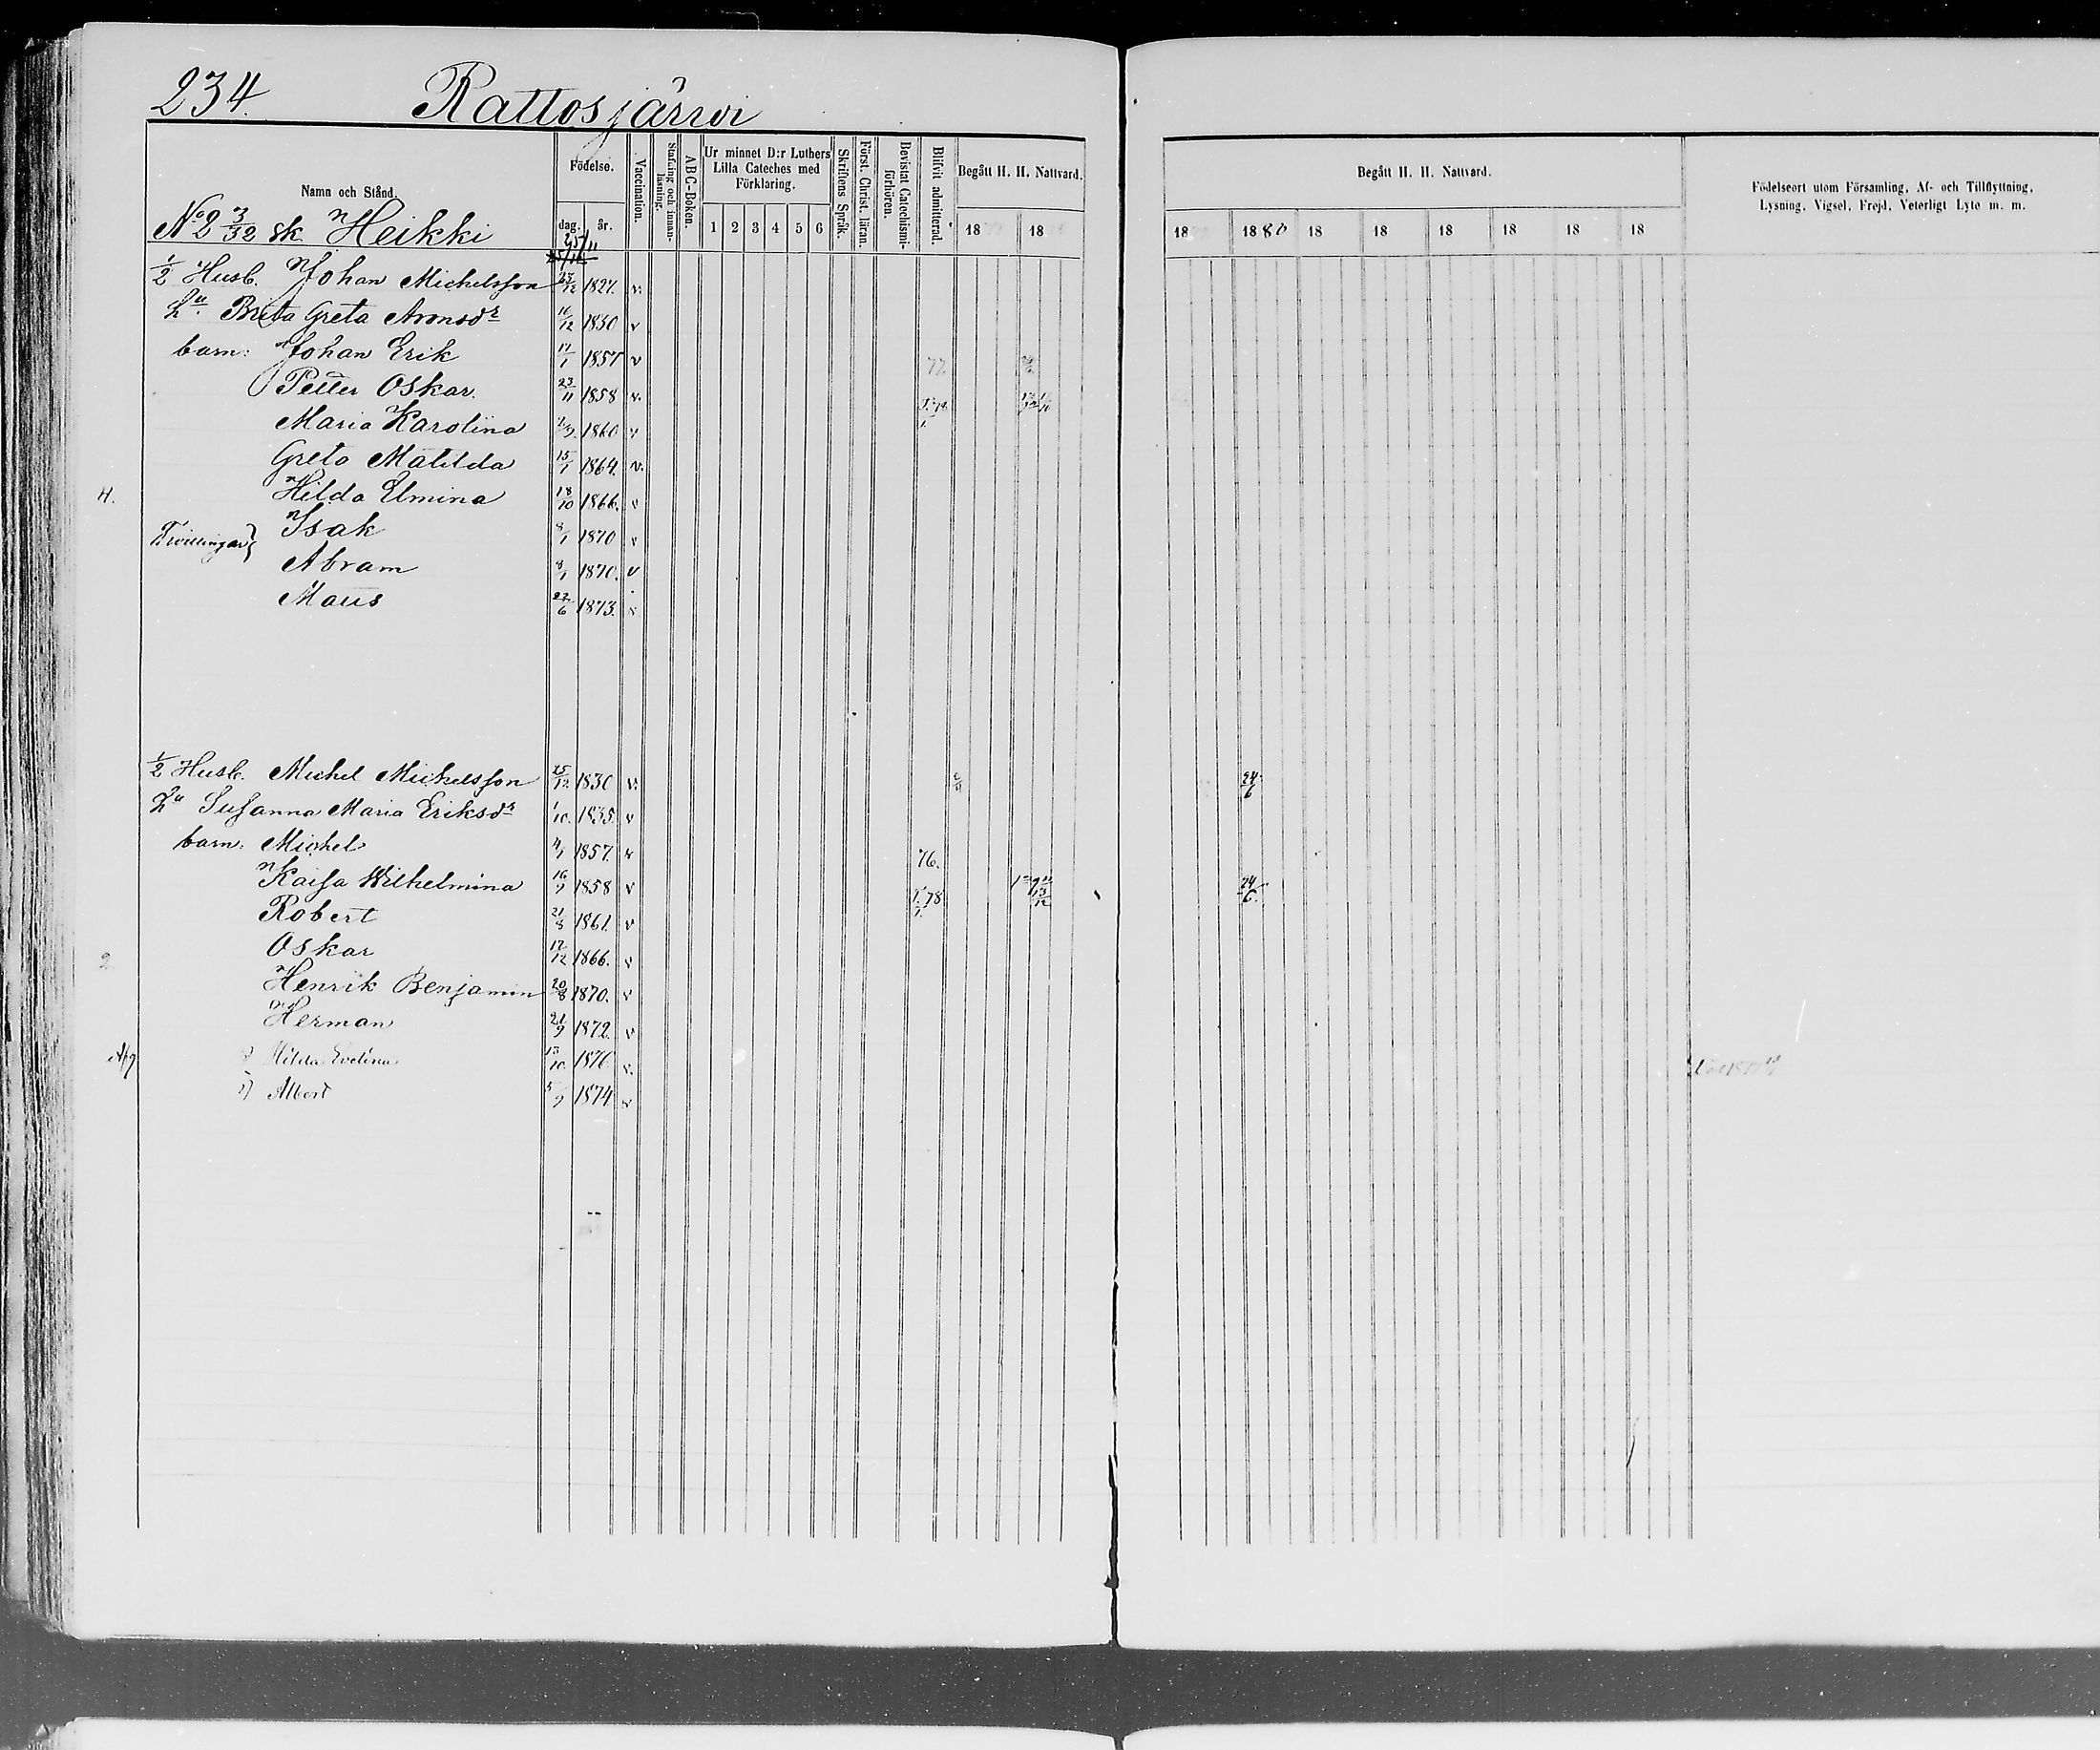 234. Rattosjärvi
Namn och Stånd. Födelse. dag. år. Vaccination. Stafning och innan-läsning. ABC-Boken. Ur minnet D:r Luthers Lilla Cateches med Förklaring. 1 2 3 4 5 6 Skriftens Språk. Först. Christ. läran. Bevistat Catechismi-förhören. Blifvit admitterad. Begått H. H. Nattvard. 18 18
Begått H. H. Nattvard. 18 1880 18 18 18 18 18 18
Födelseort utom Församling, Af- och Tillflyttning, Lysning, Vigsel, Frejd, Veterligt Lyte m. m.
No 2 3/32 sk. Heikki 25/11
1/2 Husb. Johan Michelsson 23/12 1827. v.
Hu. Brita Greta Aronsdr 16/12 1830 v
barn: Johan Erik 17/1 1857 v 77.
Petter Oskar. 23/11 1858 v.
Maria Karolina 2/9. 1860 v
Greta Matilda 15/1 1864. v.
4. Hilda Elmina 18/10 1866. v
Tvillingar { Isak 8/1 1870 v
Abram 8/1 1870. v
Maus 22/6 1873. v
1/2 Husb. Michel Michelsson 25/12. 1830 v. 24/6
Hu Susanna Maria Eriksdr 1/10. 1835. v
barn: Michel 4/1 1857. v 76.
Kaisa Wilhelmina 16/9 1858 v 78 24/6.
Robert 21/8 1861. v
2 Oskar 17/12 1866. v
Henrik Benjamin 20/8 1870. v
Herman 21/9 1872. v
Afg Hilda Evelina 13/10. 1876 v.
Albert 5/9 1874 v